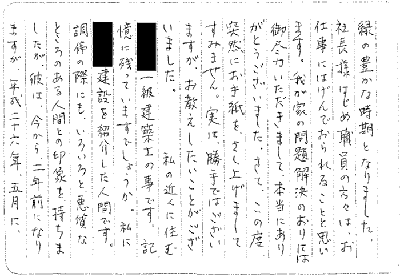 緑の豊かな時期となりました。
社長様はじめ職員の方々は、お
仕事にはげんでおられることと思い
ます。我が家の問題解決のおりには
御尽力いただきまして本当にあり
がとうございました。さて、この度
突然にお手紙をさし上げまして
すみません。実は勝手ではござい
ますがお教えしたいことがござ
いました。 私の近くに住む
一級建築士の事です。記
憶に残っていますでしょうか。私に
建設を紹介した人間です。
調停の際にも、いろいろと悪質な
ところのある人間との印象を持ちま
したが、彼は、今から二年前になり
ますが、平成二十六年、五月に